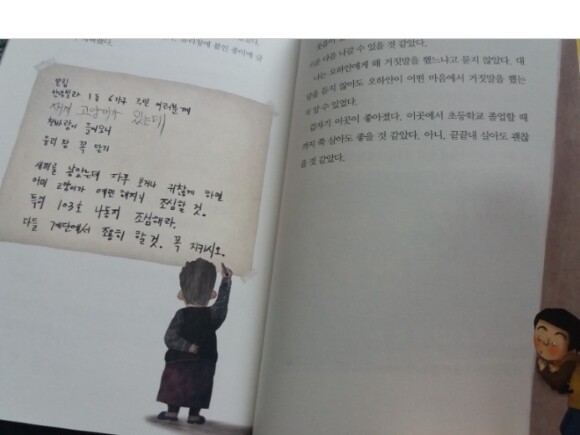 붙인 종이에 글
빌립
1동 6가구 주민 여러분께
새끼 고양이가 있는데
찬바람이 들어오니
우리 창 꼭 닫기
새끼를 낳았는데 자꾸 보거나 귀찮게 하면
어미 고양이가 예민해지니 조심할 것.
특히 103호 나동지 조심해라.
다들 계단에서 조용히 할 것. 꼭 지키시오.
으로 나갈 수 있을 것 같았다.
나는 오하얀에게 왜 거짓말을 했느냐고 묻지 않았다. 대
답을 듣지 않아도 오하얀이 어떤 마음에서 거짓말을 했는
지 알 수 있었다.
갑자기 이곳이 좋아졌다. 이곳에서 초등학교 졸업할 때
까지 쭉 살아도 좋을 것 같았다. 아니, 끝끝내 살아도 괜찮
을 것 같았다.